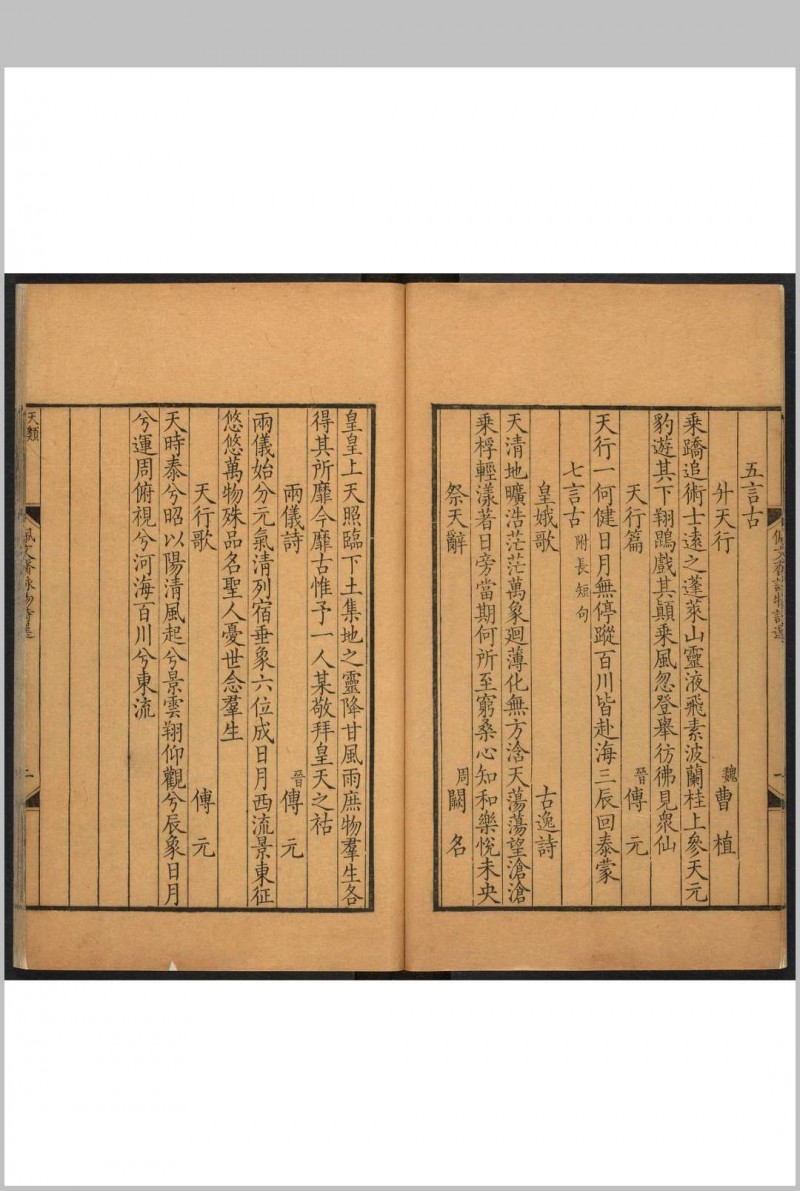 五言古
升天行 魏曹植
乘蹻追術士遠之蓬萊山靈液飛素波蘭桂上參天元
豹遊其下翔鵾戲其顛乘風忽登舉彷彿見衆仙
天行篇 晉傅元
天行一何健日月無停蹤百川皆赴海三辰回泰蒙
七言古 附長短句
皇娥歌 古逸詩
天清地曠浩茫茫萬象廻薄化無方浛天蕩蕩望滄滄
乘桴輕漾著日旁當期何所至窮桑心知和樂悅未央
祭天辭 周闕名
皇皇上天照臨下土集地之靈降甘風雨庶物羣生各
得其所靡今靡古惟予一人某敬拜皇天之祜
兩儀詩 晉傅元
兩儀始分元氣清列宿垂象六位成日月西流景東征
悠悠萬物殊品名聖人憂世念羣生
天行歌 傅元
天時泰兮昭以陽清風起兮景雲翔仰觀兮辰象日月
兮運周俯視兮河海百川兮東流
天類
佩文齋詠物詩選
二